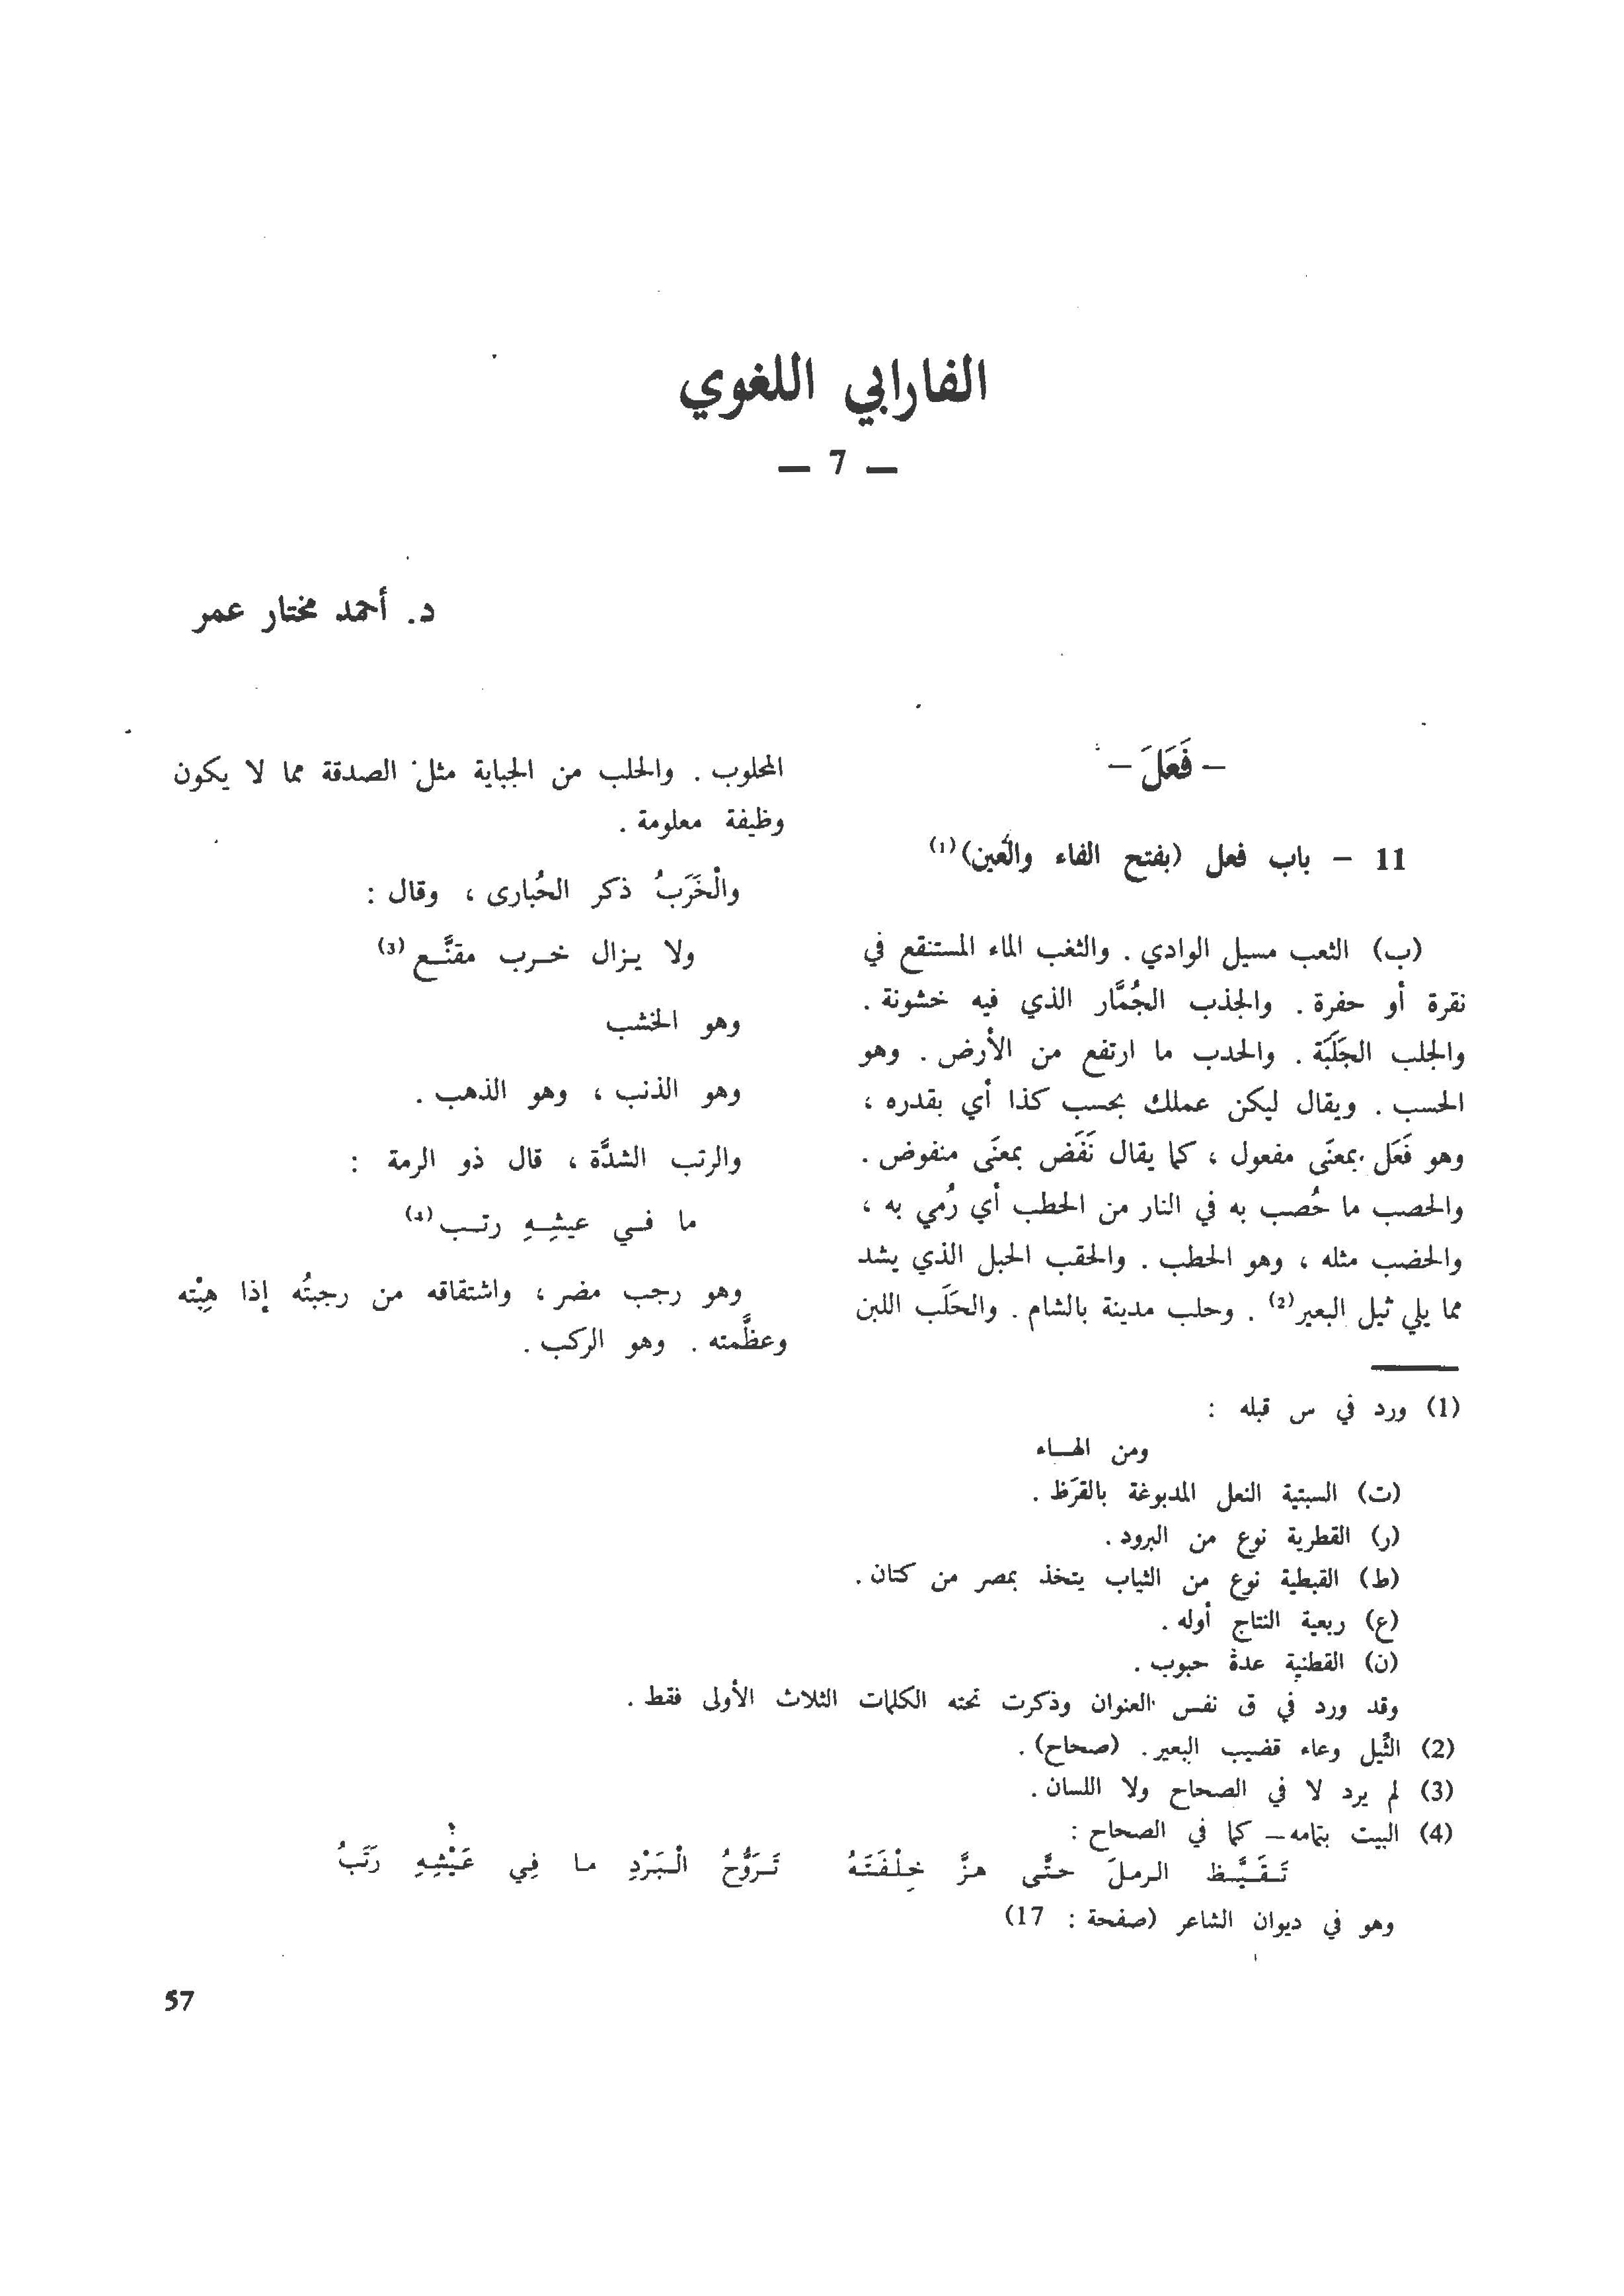 الفارابي اللغوي
— 7 —
د. أحمد مختار عمر
– فَعَلَ –
11 – باب فعل (بفتح الفاء والعين)(1)
(ب) الثعب مسيل الوادي . والثغب الماء المستنقع في
نقرة أو حفرة . والجذب الجُمَّار الذي فيه خشونة .
والجلب الجَلَبَة . والحدب ما ارتفع من الأرض . وهو
الحسب . ويقال ليكن عملك بحسب كذا أي بقدره ،
وهو فَعَل بمعنَى مفعول ، كما يقال نَفَض بمعنَى منفوض .
والحصب ما حُصب به في النار من الحطب أي رُمي به ،
والحضب مثله ، وهو الحطب . والحقب الحبل الذي يشد
مما يلي ثيل البعير(2) . وحلب مدينة بالشام . والحَلَب اللبن
المحلوب . والحلب من الجباية مثل الصدقة مما لا يكون
وظيفة معلومة .
والْخَرَبُ ذكر الحُبارى ، وقال :
ولا يـزال خــرب مقنَّــع(3)
وهو الخشب
وهو الذنب ، وهو الذهب .
والرتب الشدَّة ، قال ذو الرمة :
ما فــي عيشِــهِ رتــب(4)
وهو رجب مضر ، واشتقاقه من رجبتُه إذا هِبْته
وعظَّمته . وهو الركب .
(1) ورد في س قبله :
ومن الهـاء
(ت) السبتية النعل المدبوغة بالقَرَظ .
(ر) القطرية نوع من البرود .
(ط) القبطية نوع من الثياب يتخذ بمصر من كتان .
(ع) ربعية النتاج أوله .
(ن) القطنية عدة حبوب .
وقد ورد في ق نفس العنوان وذكرت تحته الكلمات الثلاث الأولى فقط .
(2) الثِّيل وعاء قضيب البعير . (صحاح) .
(3) لم يرد لا في الصحاح ولا اللسان .
(4) البيت بتمامه – كما في الصحاح :
تَـقَـيَّـظ الـرمـلَ حـتَّـى هـزَّ خِـلْـفَـتَـهُ تَـرَوُّحُ الْـبَـرْدِ مـا فِـي عَـيْـشِـهِ رَتَـبُ
وهو في ديوان الشاعر (صفحة : 17)
57